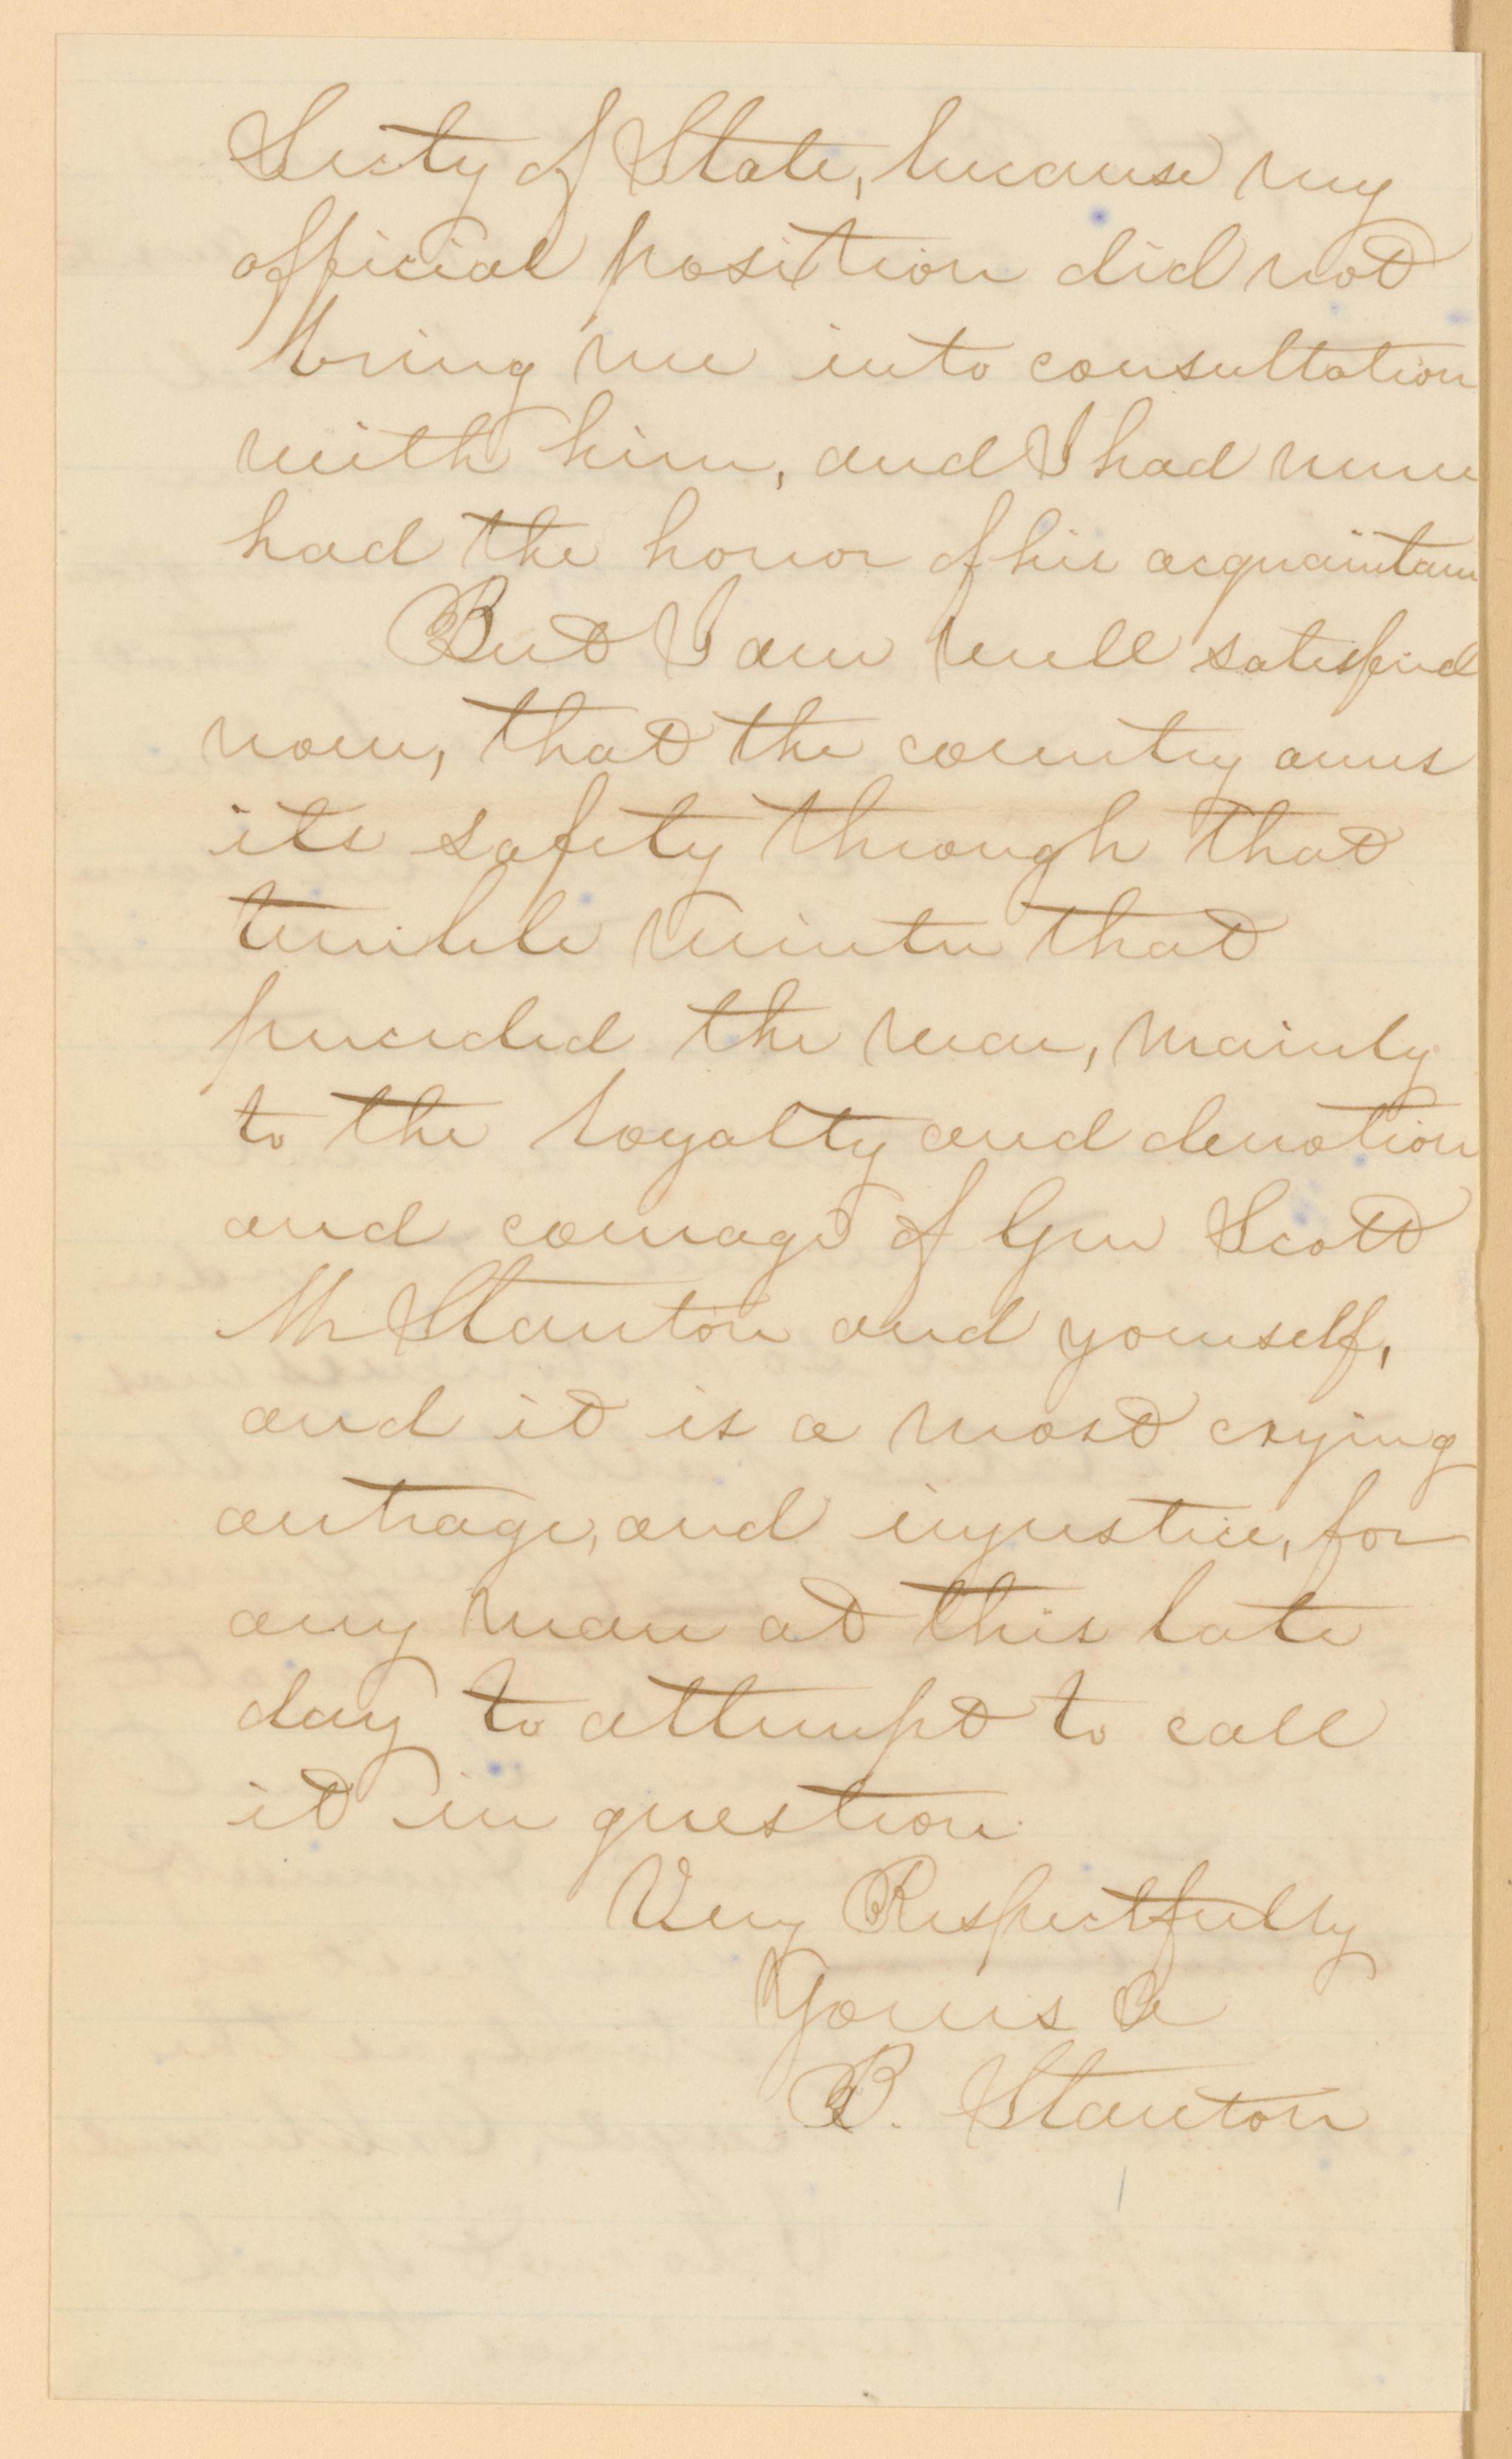 Secty of State, because my
official position did not
bring me into consultation
with him, and I had never
had the honor of his acquaintance
But I am well satisfied
now, that the country owes
its safety through that
terrible winter that
preceded the war, mainly
to the loyalty and devotion
and courage of Gen Scott
Mr Stanton and yourself,
and it is a most crying
outrage, and injustice, for
any man at this late
day to attempt to call
it in question.
Very Respectfully
Yours &
B. Stanton